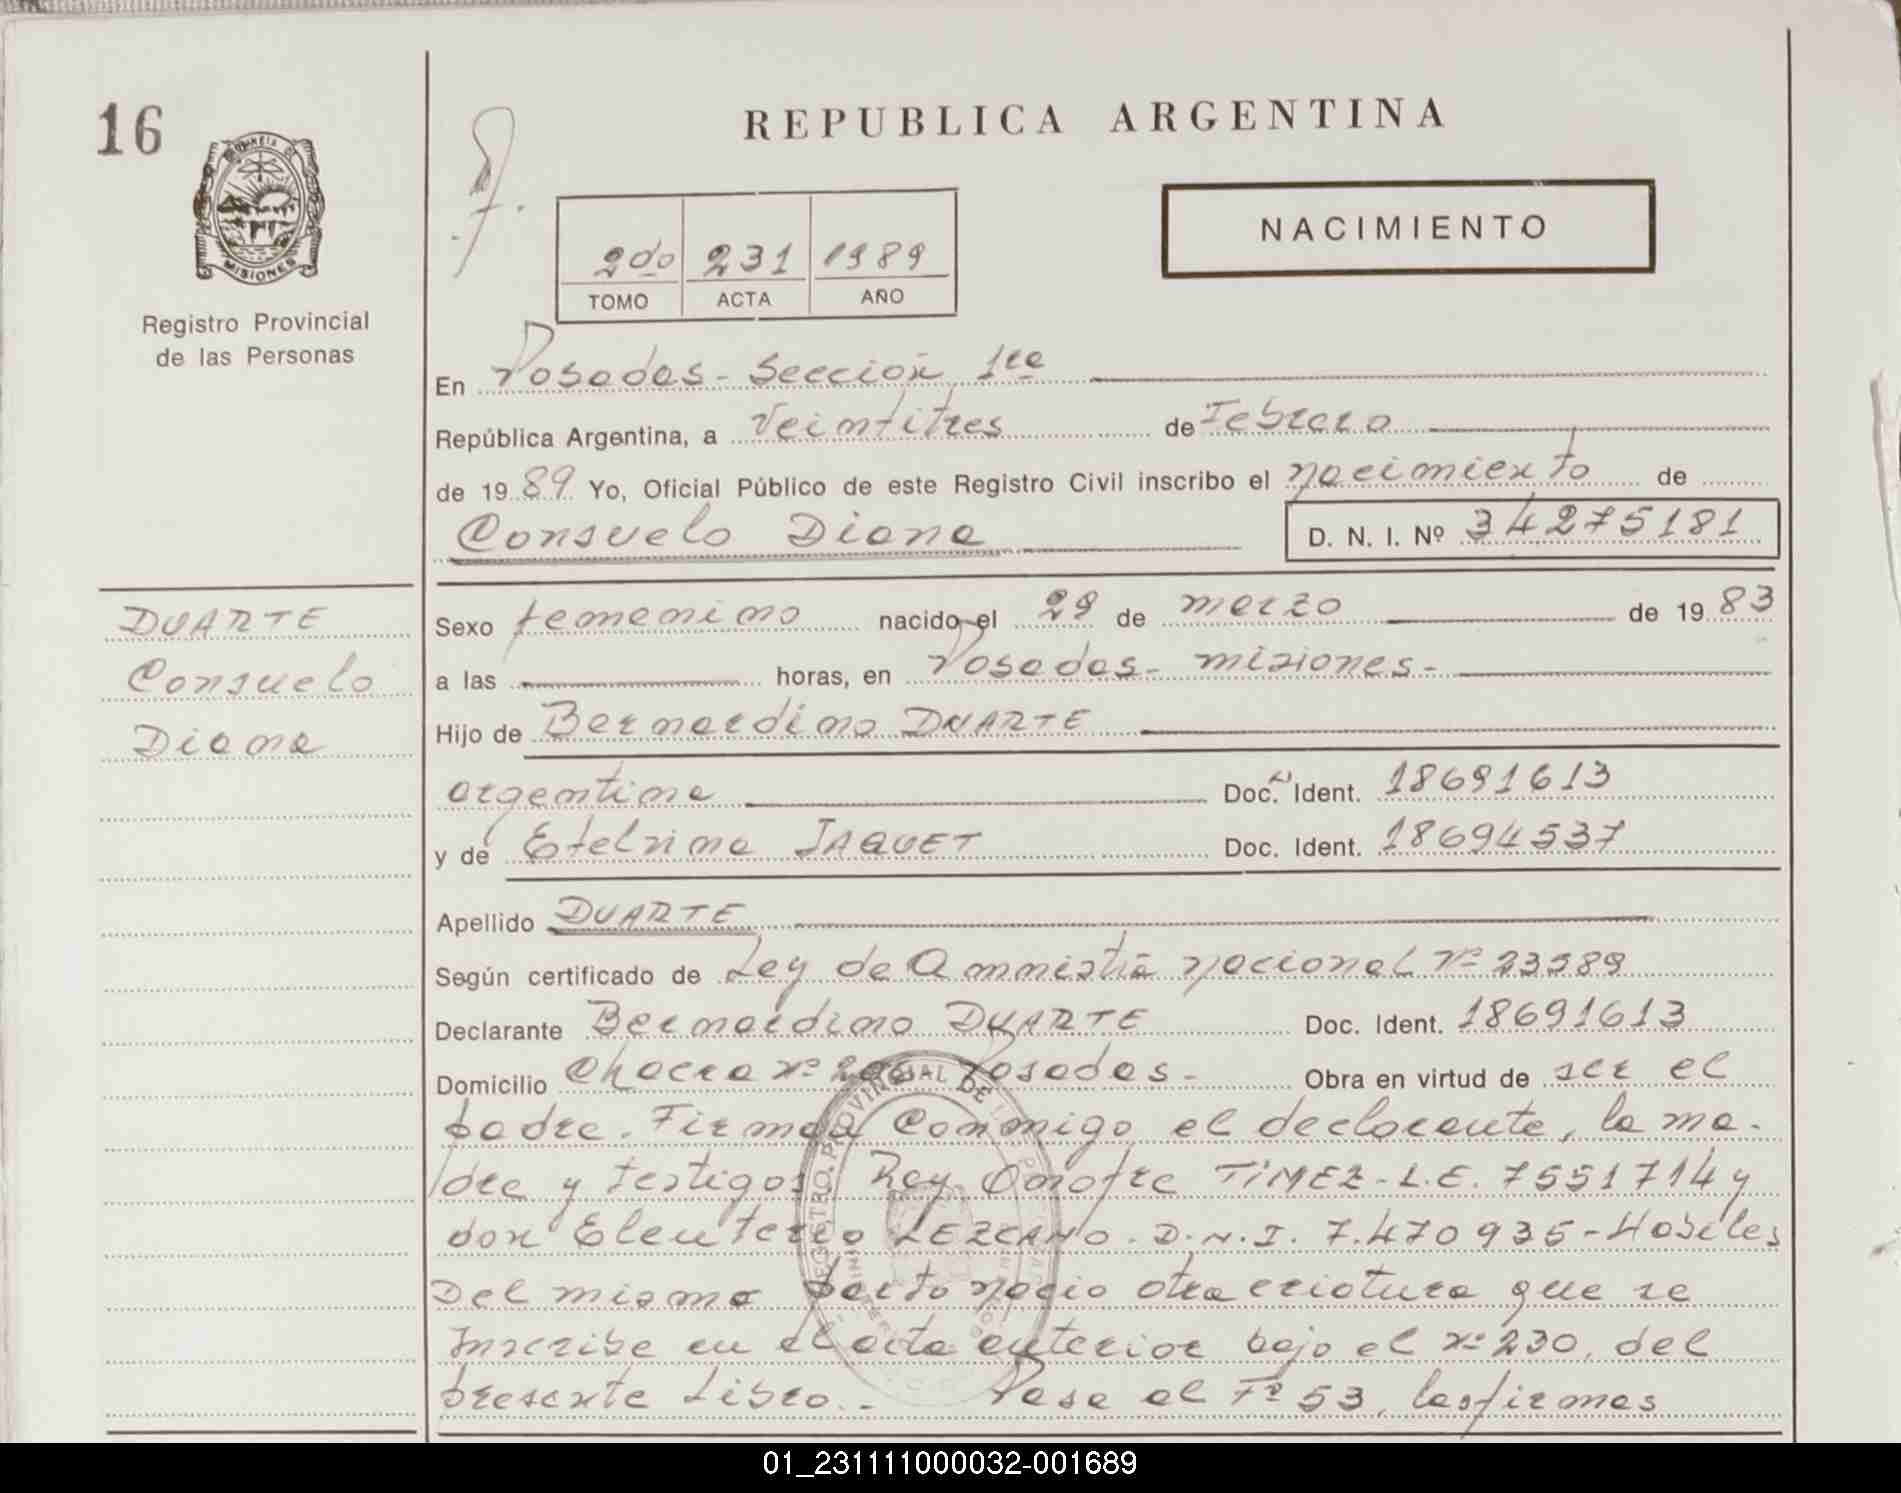 16
REPUBLICA ARGENTINA
NACIMIENTO
2do 231 1989
TOMO ACTA AÑO
MISIONES
Registro Provincial
de las Personas
En Posadas - Sección 1ra
República Argentina, a Veintitres de Febrero
de 1989 Yo, Oficial Público de este Registro Civil inscribo el nacimiento de
Consuelo Diana
D. N. I. Nº 34275181
DUARTE
Consuelo
Diana
Sexo femenino nacido el 29 de marzo de 1983
a las horas, en Posadas - misiones -
Hijo de Bernardino DUARTE
argentina Doc. Ident. 18691613
y de Etelvina JAQUET Doc. Ident. 18694537
Apellido DUARTE
Según certificado de Ley de Amnistia nacional Nº
Declarante Bernardino DUARTE Doc. Ident. 18691613
Domicilio Chacra Nº Posadas - Obra en virtud de ser el
padre. Firman Conmigo el declarante, la ma-
dre y testigos Rey Onofre L.E. 7551714 y
don Eleuterio LEZCANO. D.N.I. 7.470935 - Habiles
Del mismo parto nacio otra criatura que se
Inscribe en el acta anterior bajo el Nº 230, del
presente Libro. - Pasa al Fº 53, las firmas
01_231111000032-001689